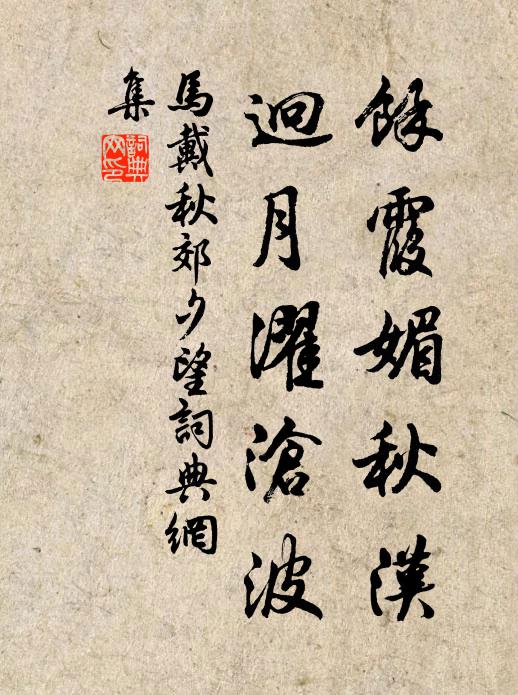 餘霞媚秋漢
迥月濯滄波
馬戴秋郊夕望詞典網
集
詞典
网印